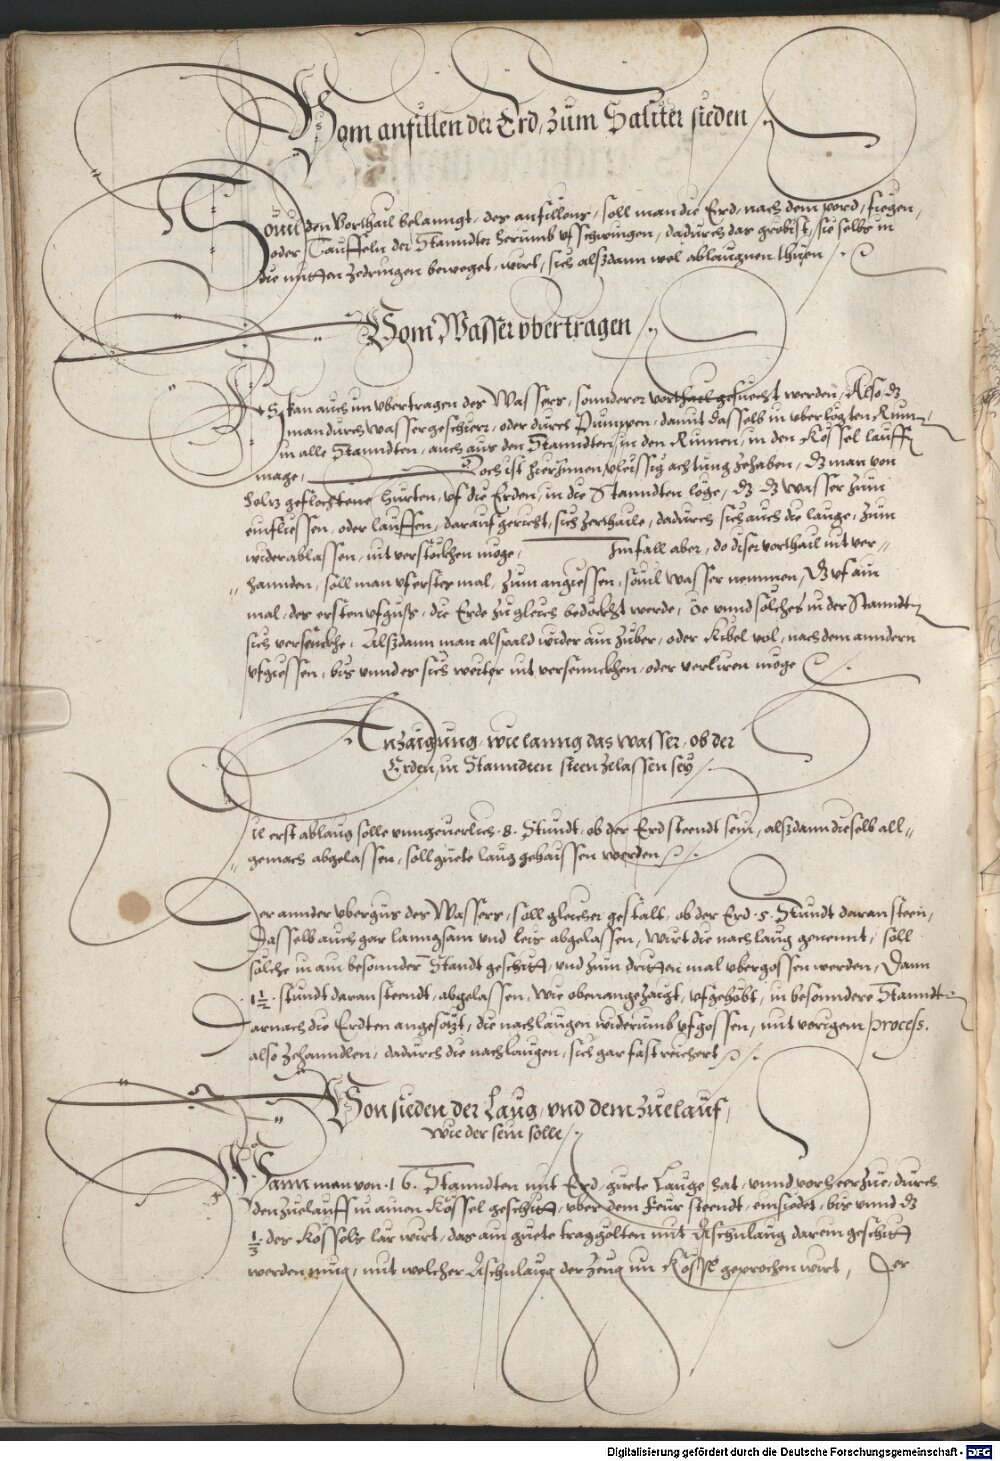 Vom anfillen der Erd, zum Saliter sieden
Souil den Vorthail belanngt, des anfillens, soll man die Erd, nach dem pord, fiegen,
oder Tauffeln der Stanndter herumb vfschwingen, dadurch das gröbist, sie selbs in
die mitten zedringen beweget, wirt, sich alßdann wol ablaugnen thuen
Vom Wasser vbertragen
Es kan auch im vbertragen des Wassers, sonderer vorthail gesuecht werden, Also dz
man durch wassergeschierr, oder durch Pumppen, damit dasselb in vberlegten Rinnen
in alle Stanndten, auch aus den Stanndten, in den Rinnen, in den Kössel lauffen
mage, Doch ist hierjnnen vleissig achtung zehaben, dz man von
Holtz geflochtene Hurten, vf die Erden, in die Stanndten lege, dz dz wasser zum
einfliessen, oder lauffen, darauf gericht, sich zerthaile, dadurch sich auch die lauge, zum
widerablassen, nit verstöckhen möge, Im fall aber, do diser vorthail nit ver„
„hannden, soll man vf erstes mal, zum angiessen, souil wasser nemmen, dz vf ain
mal, des ersten vfguß, die Erde zugleich bedöckht werde, Ee vnnd solches in der Stanndten
sich versencke, Alßdann man alspald wider ain Züber, oder Kibel vol, nach dem anndern
vfgiessen, bis vnnd es sich weiter nit versennckhen, oder verliren möge
Anzaigung, wie lanng das wasser, ob der
Erden, in Stanndten steen zelassen sey
Die erst ablaug solle vnngeuerlich .8. Stundt, ob der Erd steendt sein, alßdann dieselb all„
„gemach abgelassen, soll guete laug gehaissen werden
Der annder vbergus des Wassers, soll gleicher gestalt, ob der Erd .5. Stundt daran steen,
Dasselb auch gar lanngsam vnd leis abgelassen, wirt die nachlaug genennt, soll
solche in ain besonnder Standt geschitt, vnd zum dritten mal vbergossen werden, Dann
.1½. stundt daran steendt, abgelassen, wie oben angezaigt, vfgehöbt, in besonndere Stanndten
Darnach die Erdten angesötzt, die nachlaugen widerumb vfgossen, mit vorigem process.
also zehanndlen, dadurch die nachlaugen, sich gar fast reichert
Von sieden der Laug, vnd dem zuelauf,
wie der sein solle
Wann man von .16. Stanndten mit Erd, guete Lauge hat, vnnd vorheer zue, durch
den zuelauff in ainen Kössel geschitt, vber dem Feur steendt, einsiedet, bis vnnd dz
⅓. des Kössels lär wirt, das ain guete traggölten mit Aschnlaug darein geschitt
werden mug, mit welcher Aschnlaug der zeug im Kössel geprochen wirt, Der
Digitalisierung gefördert durch die Deutsche Forschungsgemeinschaft - DFG